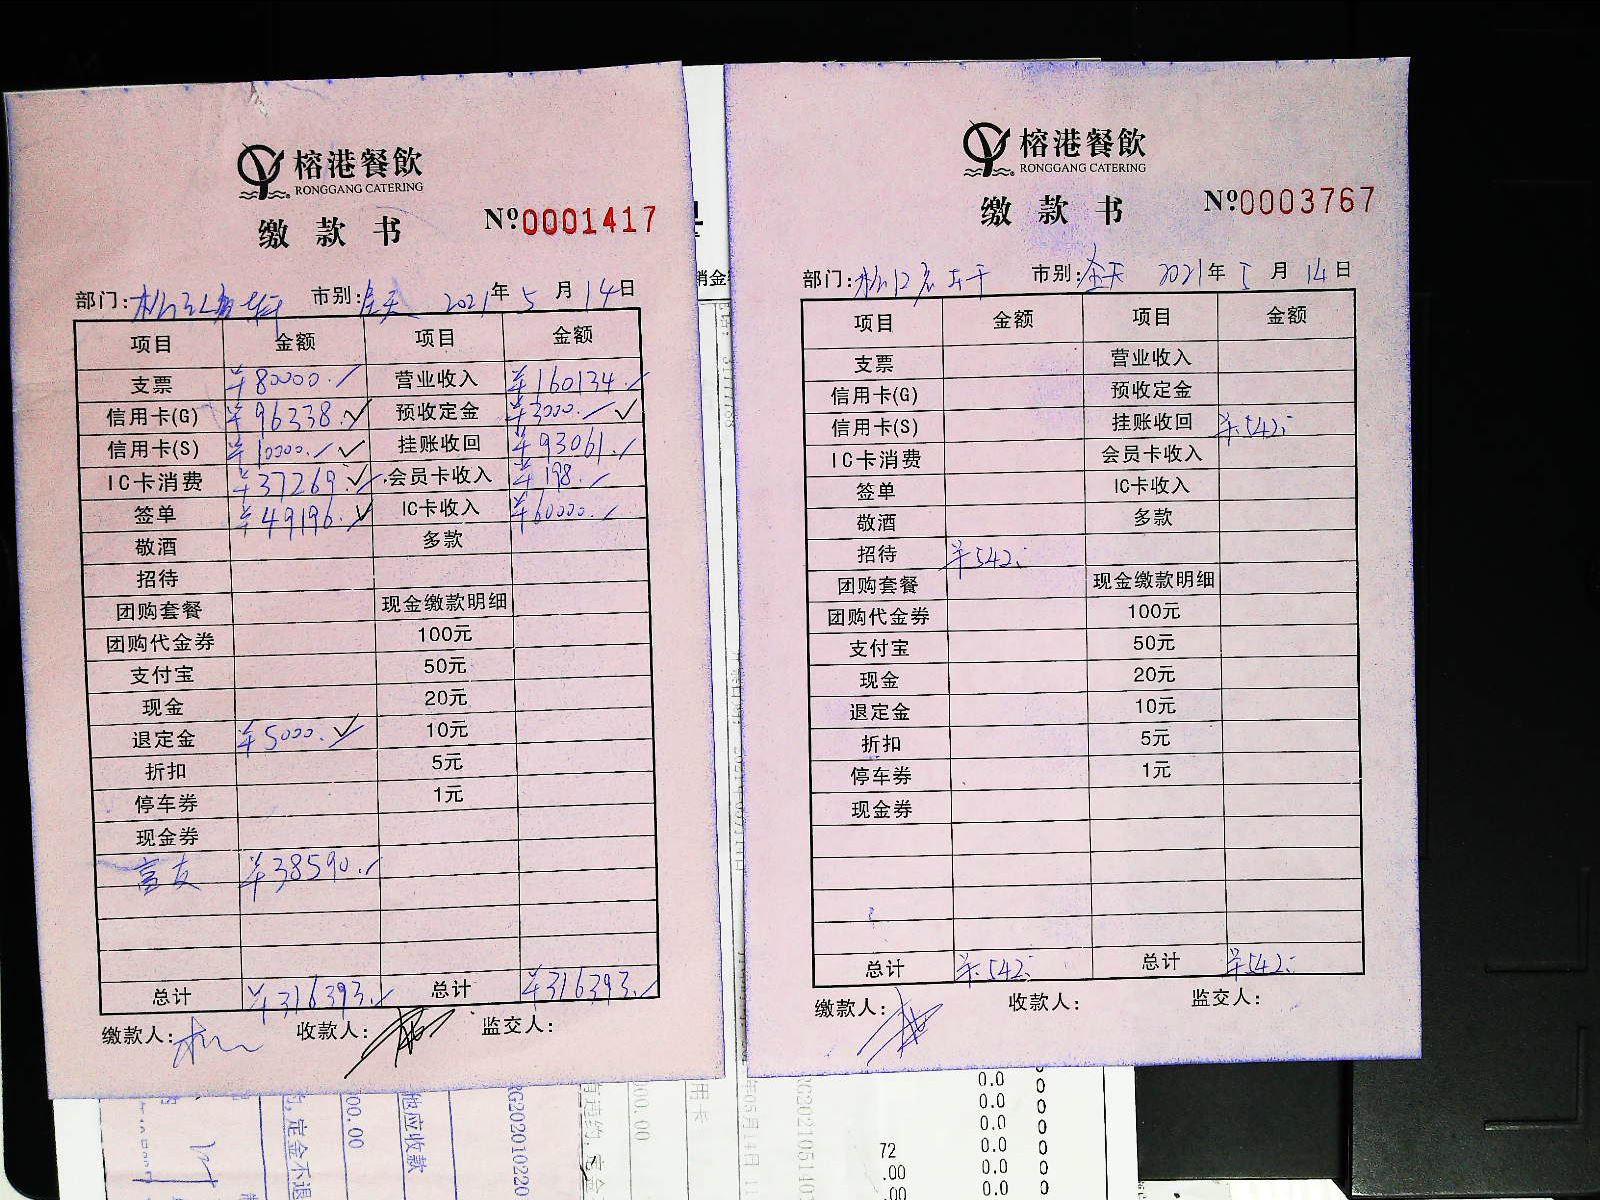 榕港餐飲
RONGGANG CATERING
缴款书
№0001417
部门: 市别:全天 2021年5月14日
项目 金额 项目 金额
支票 ¥80000. 营业收入 ¥160134.
信用卡(G) ¥96338. 预收定金 ¥3000.
信用卡(S) ¥10000. 挂账收回 ¥93061.
IC卡消费 ¥37269. 会员卡收入 ¥198.
签单 ¥49196. IC卡收入 ¥60000.
敬酒 多款
招待
团购套餐 现金缴款明细
团购代金券 100元
支付宝 50元
现金 20元
退定金 ¥5000. 10元
折扣 5元
停车券 1元
现金券
¥38590.
总计 ¥316393. 总计 ¥316393.
缴款人: 收款人: 监交人:
榕港餐飲
RONGGANG CATERING
缴款书
№0003767
部门: 市别:全天 2021年5月14日
项目 金额 项目 金额
支票 营业收入
信用卡(G) 预收定金
信用卡(S) 挂账收回 ¥542.
IC卡消费 会员卡收入
签单 IC卡收入
敬酒 多款
招待 ¥542.
团购套餐 现金缴款明细
团购代金券 100元
支付宝 50元
现金 20元
退定金 10元
折扣 5元
停车券 1元
现金券
总计 ¥542. 总计 ¥542.
缴款人: 收款人: 监交人:
0.0 0
0.0 0
0.0 0
72 0.0 0
.00 0.0 0
.00 0.0 0
定金不退
00.00
他应收款
00.00
用卡